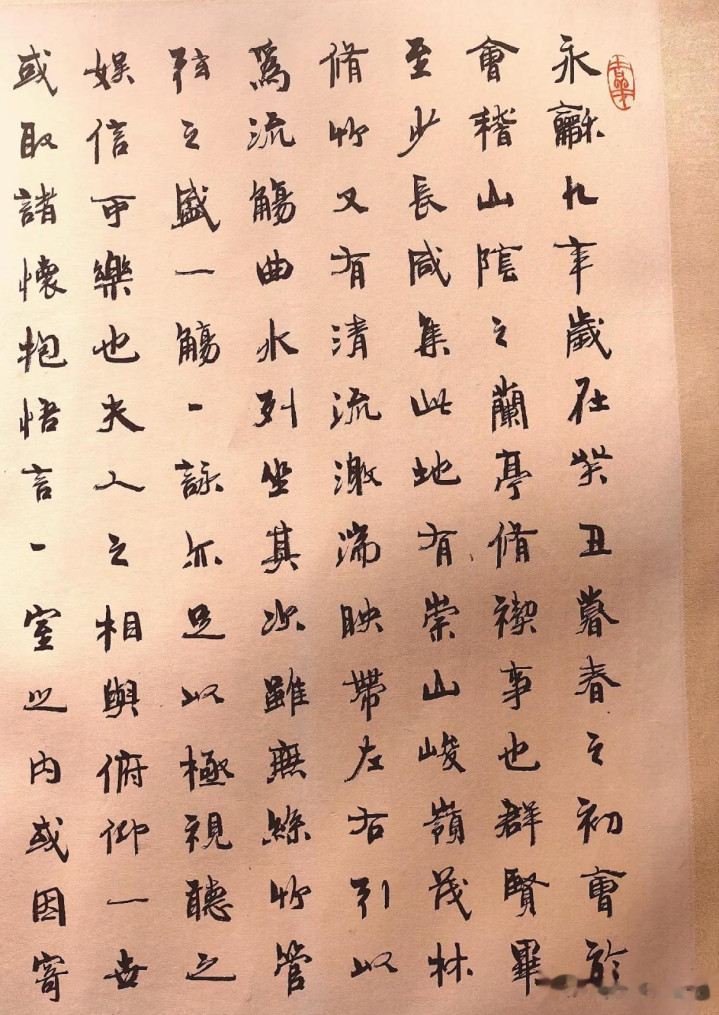 永龢九年歲在癸丑暮春之初會於
會稽山陰之蘭亭脩禊事也群賢畢
至少長咸集此地有崇山峻嶺茂林
脩竹又有清流激湍映帶左右引以
爲流觴曲水列坐其次雖無絲竹管
弦之盛一觴一詠亦足以極視聽之
娛信可樂也夫人之相與俯仰一世
或取諸懷抱悟言一室之内或因寄